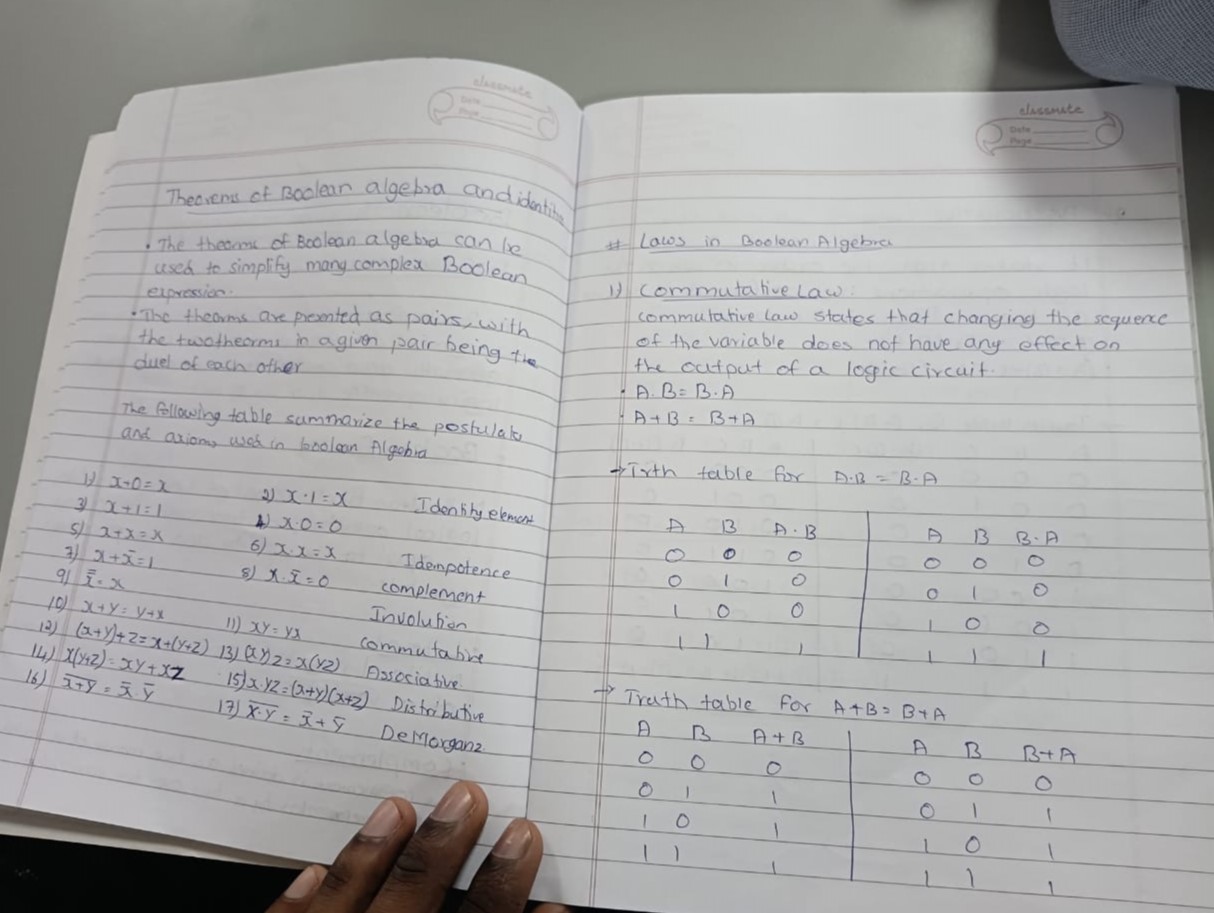 classmate
Date
Page
Theorems of Boolean algebra and identiti
• The theorms of Boolean algebra can be
used to simplify many complex Boolean
expression.
• The theorms are presented as pairs, with
the two theorms in a given pair being the
duel of each other
The following table summarize the postulats
and axioms used in boolean Algebra
1) x+0=x 2) x·1=x Identity element
3) x+1=1 4) x·0=0
5) x+x=x 6) x·x=x Idempotence
7) x+x̅=1 8) x·x̅=0 complement
9) x̿=x Involution
10) x+y=y+x 11) xy=yx commutative
12) (x+y)+z=x+(y+z) 13) (xy)z=x(yz) Associative
14) x(y+z)=xy+xz 15) x·yz=(x+y)(x+z) Distributive
16) x̅+̅y̅ = x̅·y̅ 17) x̅·̅y̅ = x̅+y̅ DeMorganz
classmate
Date
Page
# Laws in Boolean Algebra
1) Commutative Law:
commutative law states that changing the sequence
of the variable does not have any effect on
the output of a logic circuit.
• A.B=B.A
• A+B=B+A
→ Trth table for A·B = B·A
A B A·B A B B·A
0 0 0 0 0 0
0 1 0 0 1 0
1 0 0 1 0 0
1 1 1 1 1 1
→ Truth table for A+B=B+A
A B A+B A B B+A
0 0 0 0 0 0
0 1 1 0 1 1
1 0 1 1 0 1
1 1 1 1 1 1